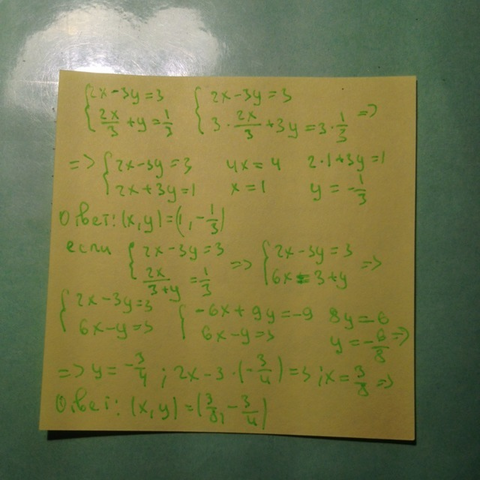 {2x-3y=3 {2x-3y=3
{2x/3+y=1/3 {3·2x/3+3y=3·1/3 =>
=> {2x-3y=3 4x=4 2·1+3y=1
{2x+3y=1 x=1 y=-1/3
Ответ: (x,y)=(1,-1/3)
если {2x-3y=3 => {2x-3y=3 =>
{2x/(3+y)=1/3 {6x=3+y
{2x-3y=3 {-6x+9y=-9 8y=-6
{6x-y=3 {6x-y=3 y=-6/8 =>
=> y=-3/4; 2x-3·(-3/4)=3; x=3/8 =>
Ответ: (x,y)=(3/8,-3/4)